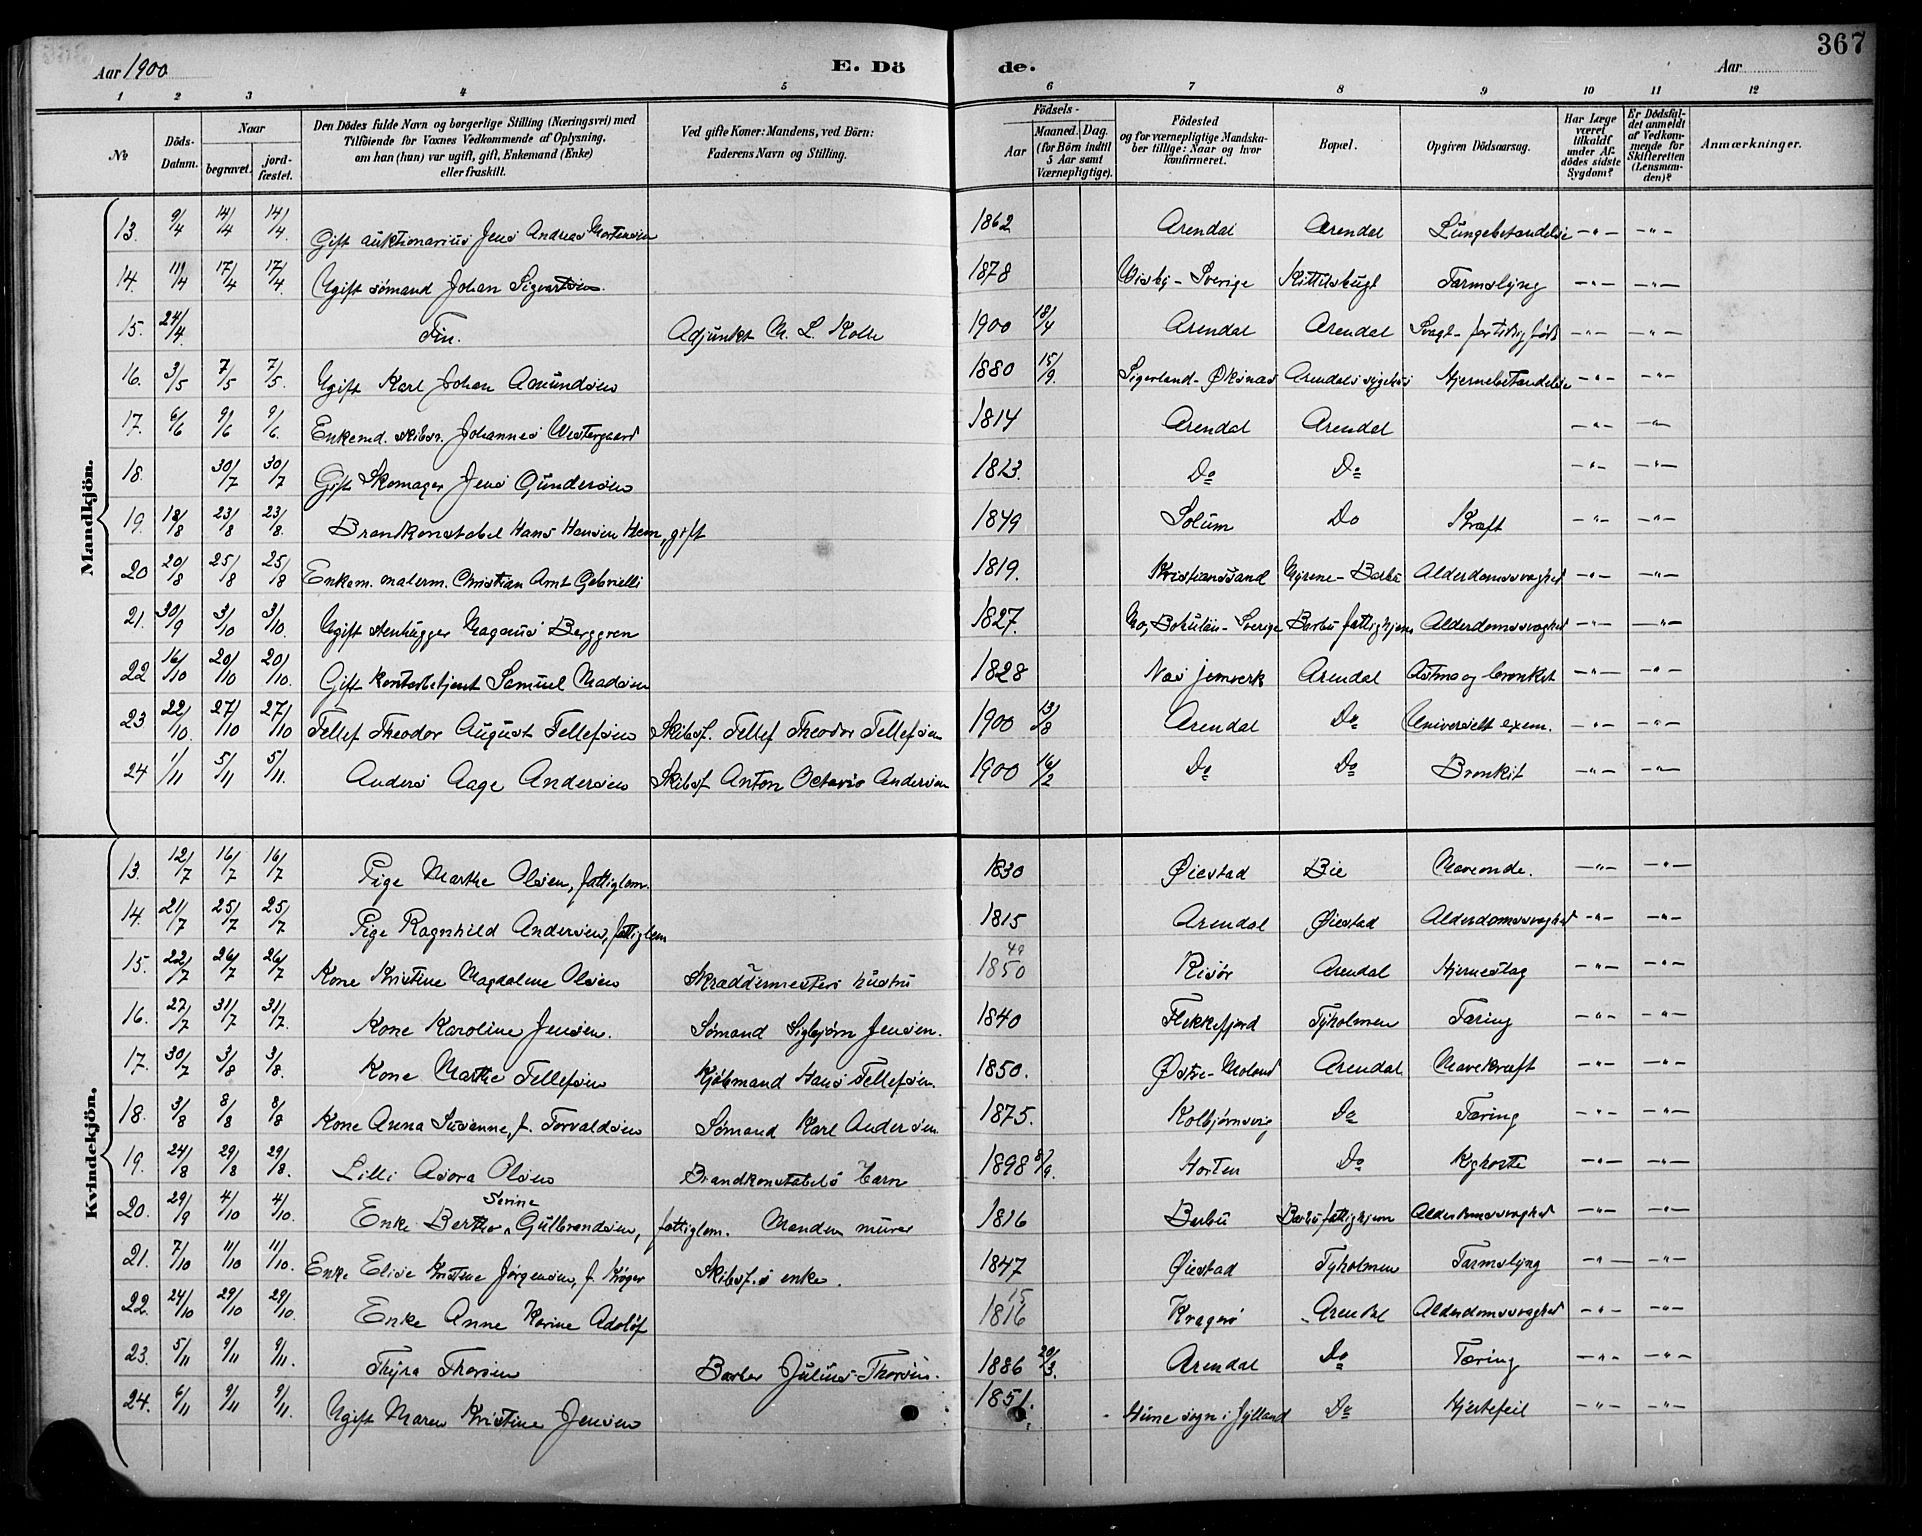 367
Aar 1900
E. Dö
de.
Aar
1 2 3 4 5 6 7 8 9 10 11 12
No
Döds-Datum.
Naar
begravet.
jord-fæstet.
Den Dödes fulde Navn og borgerlige Stilling (Næringsvei) med
Tilföiende for Voxnes Vedkommende af Oplysning,
om han (hun) var ugift, gift, Enkemand (Enke)
eller fraskilt.
Ved gifte Koner: Mandens, ved Börn:
Faderens Navn og Stilling.
Födsels-
Aar
Maaned. Dag.
(for Börn indtil
5 Aar samt
Værnepligtige).
Födested
og for værnepligtige Mandska-
ber tillige: Naar og hvor
konfirmeret.
Bopæl.
Opgiven Dödsaarsag.
Har Læge
været
tilkaldt
under Af-
dödes sidste
Sygdom?
Er Dödsfal-
det anmeldt
af Vedkom-
mende for
Skifteretten
(Lensman-
den)?
Anmærkninger.
Mandkjön.
13. 9/4 14/4 14/4. Gift auktionarius Jens Andreas Mortensen 1862 Arendal Arendal Lungebetændelse -"- -"-
14. 11/4 17/4 17/4. Ugift sömand Johan Sigvartsen. 1878 Visby - Sverige Kittelsbugt Tarmslyng -"- -"-
15. 24/4 Fin. Adjunkt M. L. Kolle 1900 18/4 Arendal Arendal Svagt- for tidlig født -"- -"-
16. 3/5 7/5 7/5. Ugift Karl Johan Amundsen 1880 15/9. - Øksnes Arendals sygehus Hjernebetændelse -"- -"-
17. 6/6 9/6 9/6. Enkemd. skibsr. Johannes Westergaard 1814 Arendal Arendal -"- -"-
18. 30/7 30/7 Gift Skomager Jens Gundersen 1823. Do Do -"- -"-
19. 18/8 23/8 23/8. Brandkonstabel Hans Hansen Hem, gift 1849 Solum Do Kræft -"- -"-
20 20/8 25/8 25/8 Enkem. malerm. Christian Arnt Gabrielli 1819. Kristianssand Myrene - Barbu Alderdomssvaghed -"- -"-
21. 30/9 3/10 3/10. Ugift stenhugger Magnus Berggren 1827. Mo, Bohulän - Sverige Barbu fattighjem Alderdomssvaghed -"- -"-
22 16/10 20/10 20/10. Gift kontorbetjent Samuel Madsen 1828 Næs jernverk Arendal Astma og bronkit -"- -"-
23 22/10. 27/10 27/10 Tellef Theodor August Tellefsen Skibsf. Tellef Theodor Tellefsen 1900 13/8 Arendal Do Universelt exem. -"- -"-
24 1/11 5/11 5/11. Anders Aage Andersen Skibsf. Anton Octavio Andersen 1900 16/2 Do Do Bronkit -"- -"-
Kvindekjön.
13. 12/7 16/7 16/7 Pige Marthe Olsen, fattiglem. 1830 Øiestad Bie Maveonde. -"- -"-
14. 21/7 25/7 25/7 Pige Ragnhild Andersen, fattiglem 1815 Arendal Øiestad Alderdomssvaghed -"- -"-
15. 22/7 26/7 26/7 Kone Kristine Magdalene Olsen Skræddermesters hustru 1850 49 Risør Arendal Hjerneslag -"- -"-
16. 27/7 31/7 31/7. Kone Karoline Jensen. Sømand Sigbjørn Jensen. 1840 Flekkefjord Tyholmen Tæring -"- -"-
17. 30/7 3/8 3/8. Kone Marthe Tellefsen Kjöbmand Hans Tellefsen. 1850. Østre - Moland Arendal Mavekræft -"- -"-
18. 3/8 8/8 8/8 Kone Anna Susanne, f. Torvaldsen Sømand Karl Andersen. 1875. Kolbjørnsvig Do Tæring -"- -"-
19. 24/8 29/8 29/8. Lilli Asora Olsen Brandkonstabels barn 1898 8/9. Horten Do Kighoste -"- -"-
20. 29/9 4/10 4/10. Enke Berthe Serine Gulbrandsen, fattiglem. Manden murer 1816 Barbu Barbu fattighjem Alderdomssvaghed -"- -"-
21. 7/10 11/10 11/10. Enke Elise Kristine Jørgensen, f. Krøger Skibsf.s enke. 1847 Øiestad Tyholmen Tarmslyng -"- -"-
22. 24/10 29/10 29/10. Enke Anne Karine Adolöf 1816 15 Kragerö Arendal Alderdomssvaghed -"- -"-
23. 5/11 9/11 9/11. Thyra Thorsen Barber Julius Thorsen. 1886 20/3. Arendal Do Tæring -"- -"-
24. 6/11 9/11 9/11. Ugift Maren Kristine Jensen 1851. Hune sogn i Jylland Do Hjertefeil -"- -"-